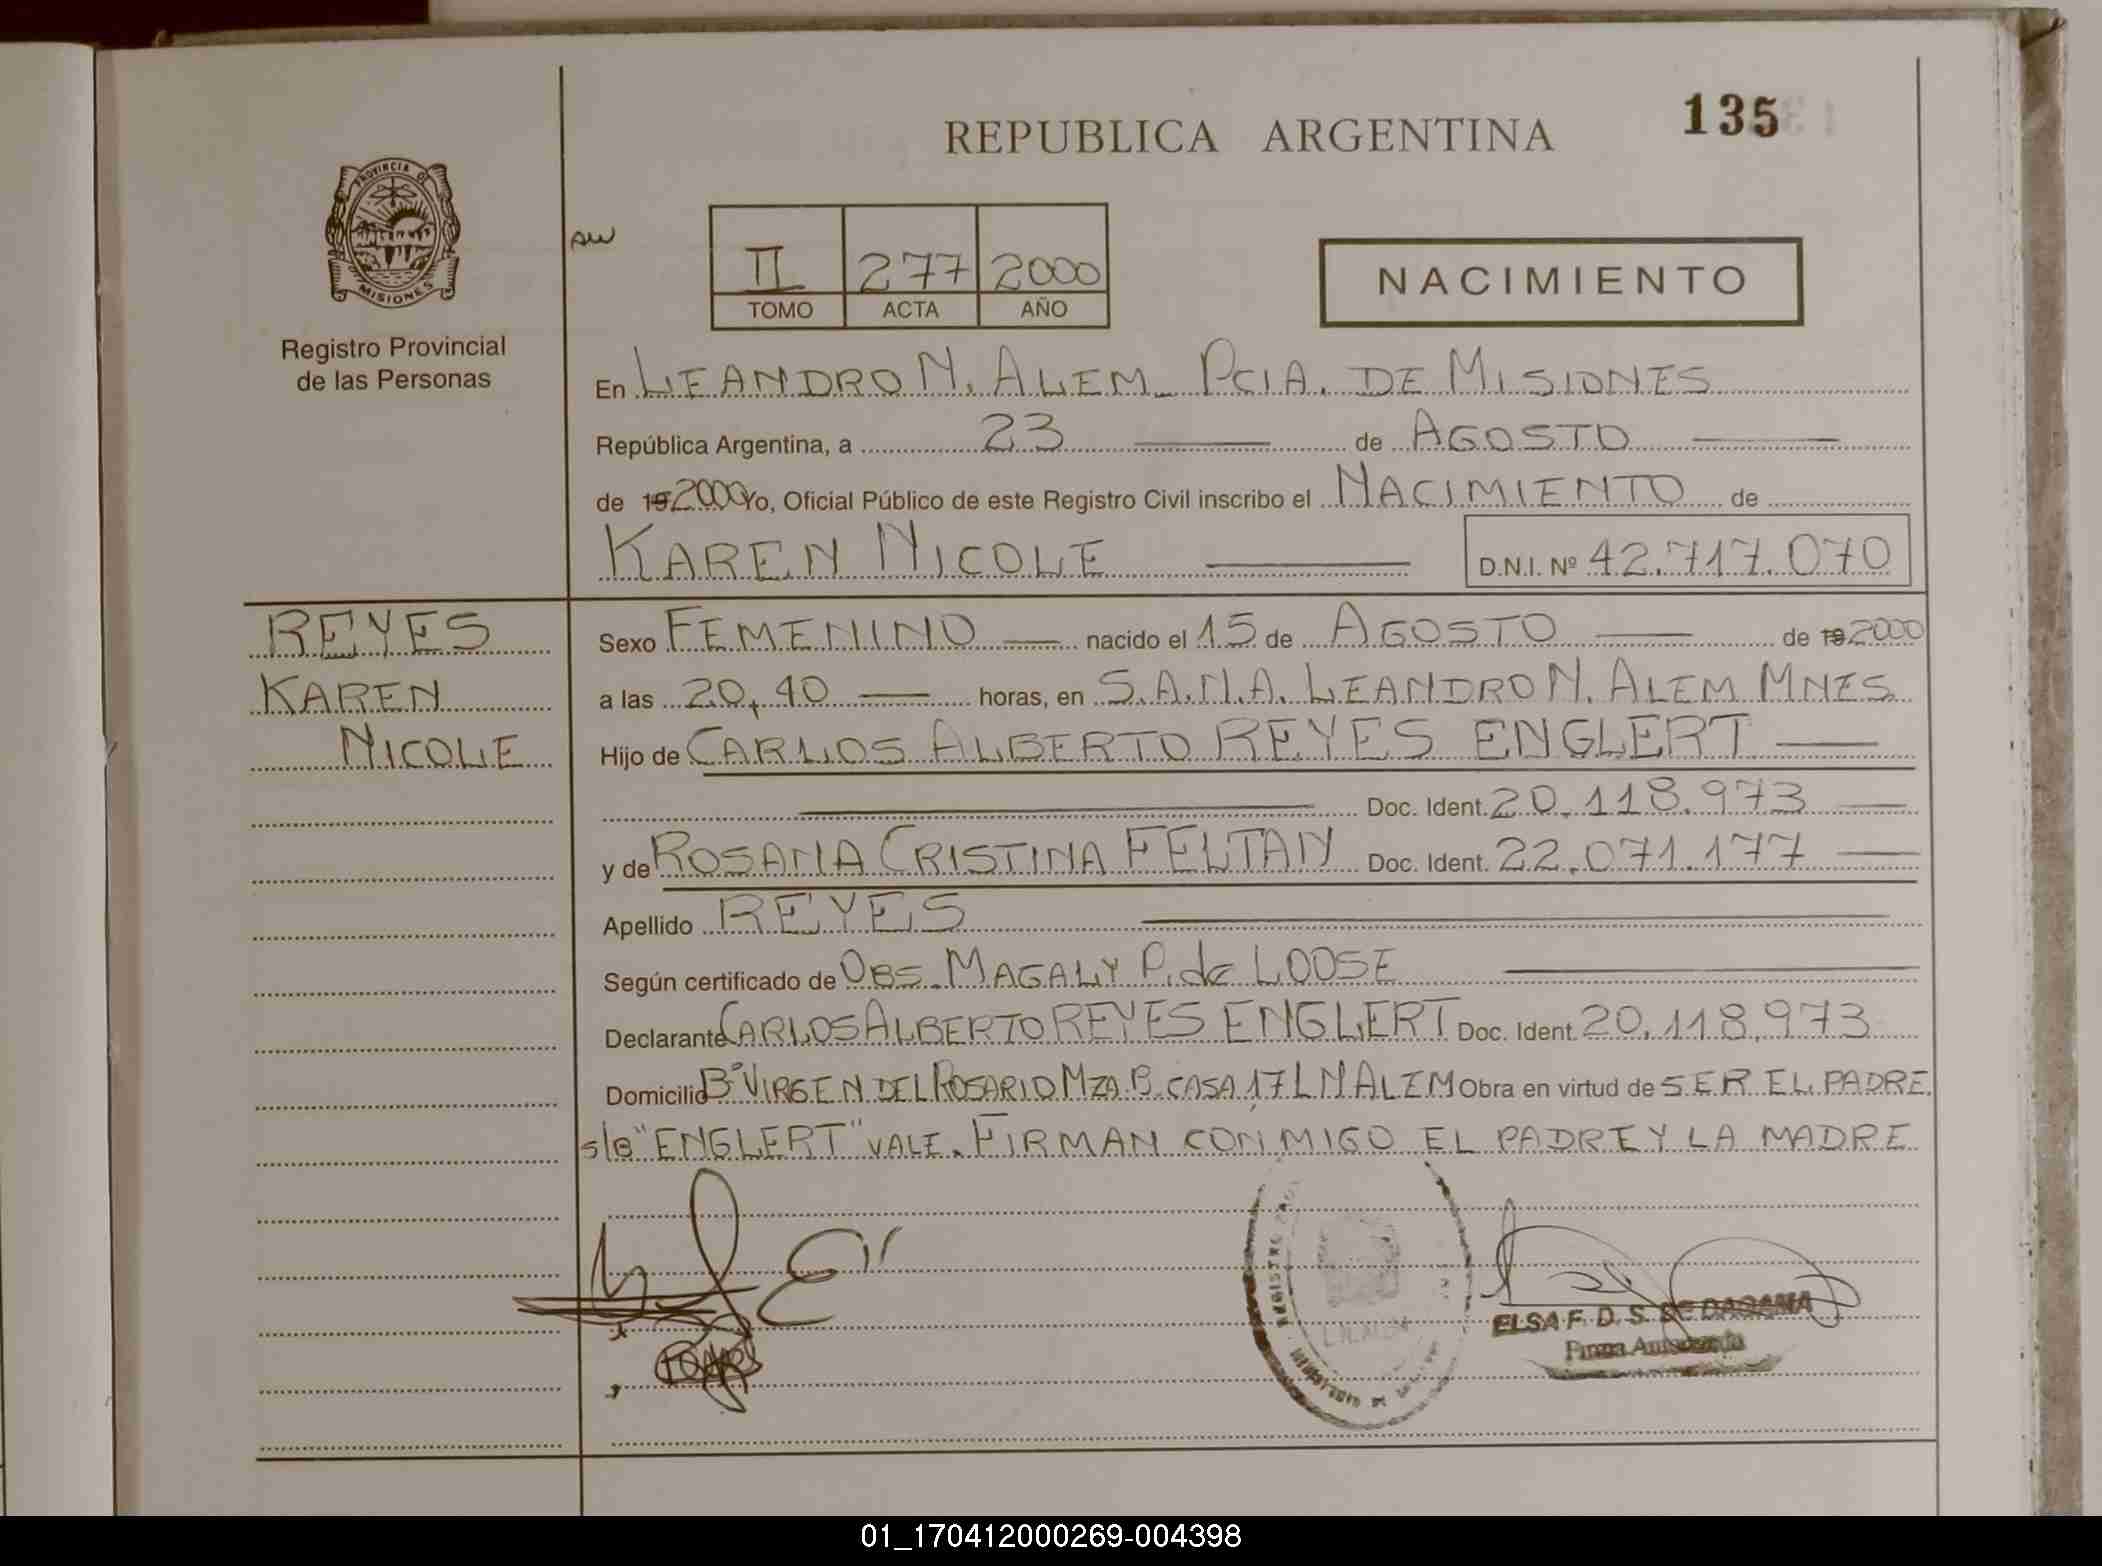 REPUBLICA ARGENTINA
135
PROVINCIA DE
MISIONES
Registro Provincial
de las Personas
II 277 2000
TOMO ACTA AÑO
NACIMIENTO
En LEANDRO N. ALEM_ PCIA. DE MISIONES
República Argentina, a 23 de AGOSTO
de 19 2000 Yo, Oficial Público de este Registro Civil inscribo el NACIMIENTO de
KAREN NICOLE D.N.I. Nº 42.717.070
REYES
KAREN
NICOLE
Sexo FEMENINO nacido el 15 de AGOSTO de 19 2000
a las 20,40 horas, en S.A.N.A. LEANDRO N. ALEM MNES
Hijo de CARLOS ALBERTO REYES ENGLERT
Doc. Ident. 20.118.973
y de ROSANA CRISTINA FELTAN Doc. Ident. 22.071.177
Apellido REYES
Según certificado de OBS. MAGALY P. de LOOSE
Declarante CARLOS ALBERTO REYES ENGLERT Doc. Ident. 20.118.973
Domicilio Bº VIRGEN DEL ROSARIO MZA. B. CASA 17 L N ALEM Obra en virtud de SER EL PADRE.
s/B "ENGLERT" VALE. FIRMAN CONMIGO EL PADRE Y LA MADRE
ELSA F. D. S. DE
Firma Autorizada
01_170412000269-004398